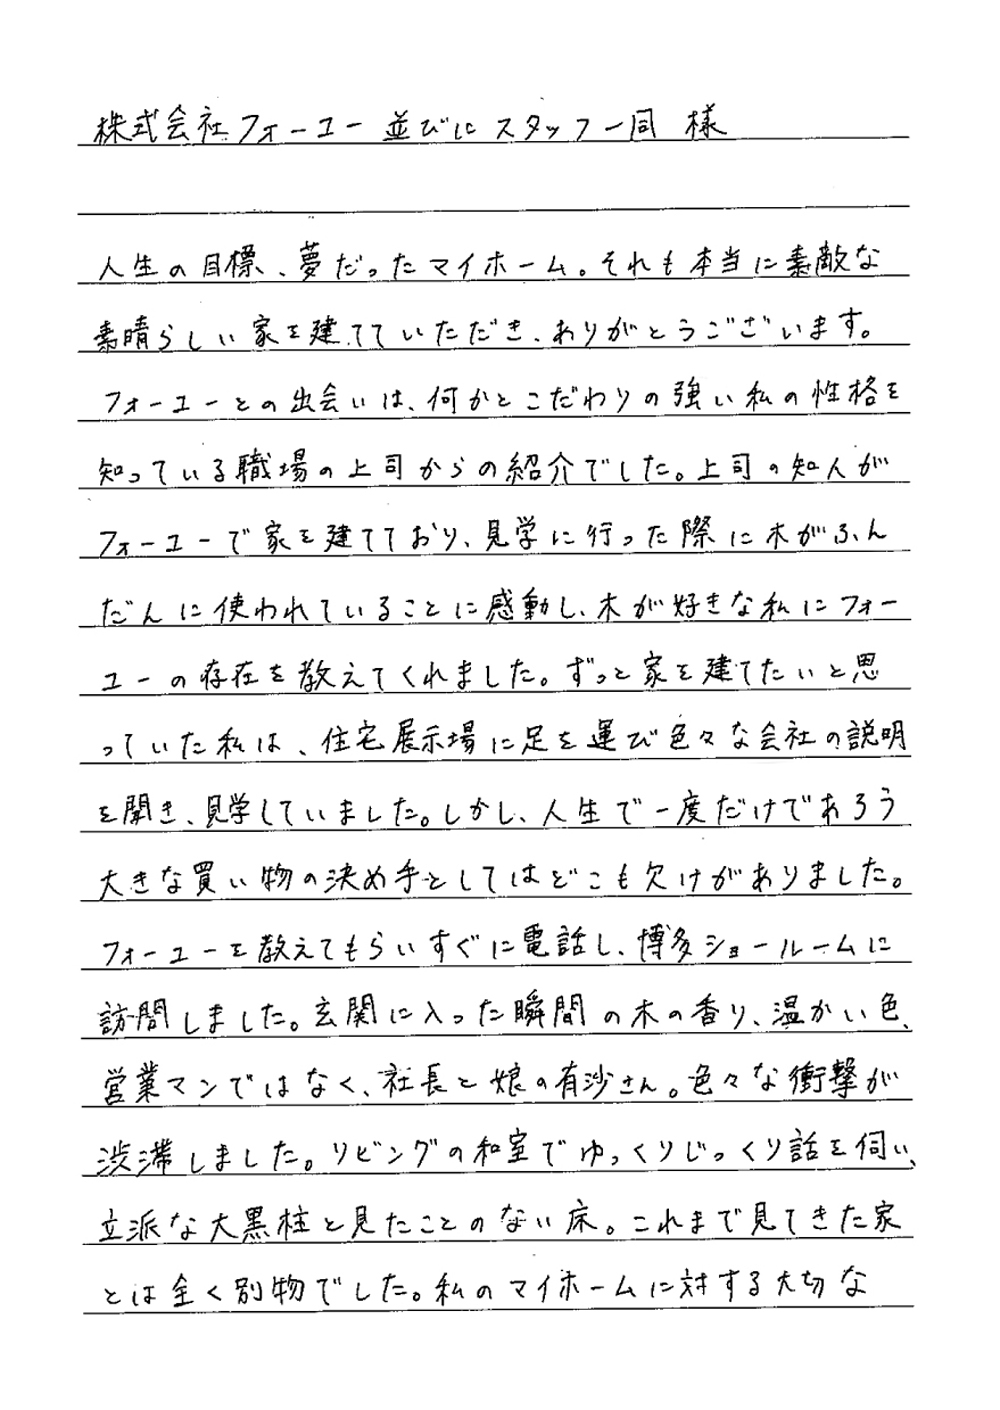 株式会社フォーユー並びにスタッフ一同 様
人生の目標、夢だったマイホーム。それも本当に素敵な
素晴らしい家を建てていただき、ありがとうございます。
フォーユーとの出会いは、何かとこだわりの強い私の性格を
知っている職場の上司からの紹介でした。上司の知人が
フォーユーで家を建てており、見学に行った際に木がふん
だんに使われていることに感動し、木が好きな私にフォー
ユーの存在を教えてくれました。ずっと家を建てたいと思
っていた私は、住宅展示場に足を運び色々な会社の説明
を聞き、見学していました。しかし、人生で一度だけであろう
大きな買い物の決め手としてはどこも欠けがありました。
フォーユーを教えてもらいすぐに電話し、博多ショールームに
訪問しました。玄関に入った瞬間の木の香り、温かい色、
営業マンではなく、社長と娘の有沙さん。色々な衝撃が
渋滞しました。リビングの和室でゆっくりじっくり話を伺い、
立派な大黒柱と見たことのない床。これまで見てきた家
とは全く別物でした。私のマイホームに対する大切な